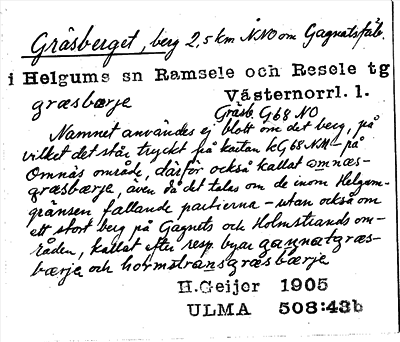 Gräsberget, berg 2,5 km NNO om Gagnetsfäb.
i Helgums sn Ramsele och Resele tg
græsbærje Västernorrl. l.
Gräsb. G68 NO
Namnet användes ej blott om det berg, på
vilket det står tryckt på kartan kG68NN – på
Omnäs område, därför också kallat omnæs-
græsbærje, även då det talas om de inom Helgum-
gränsen fallande partierna – utan också om
ett stort berg på Gagnets och Holmstrands om-
råden, kallat efter resp. byar gagnatgræs-
bærje och hormstransgræsbærje
H.Geijer 1905
ULMA 508:43b